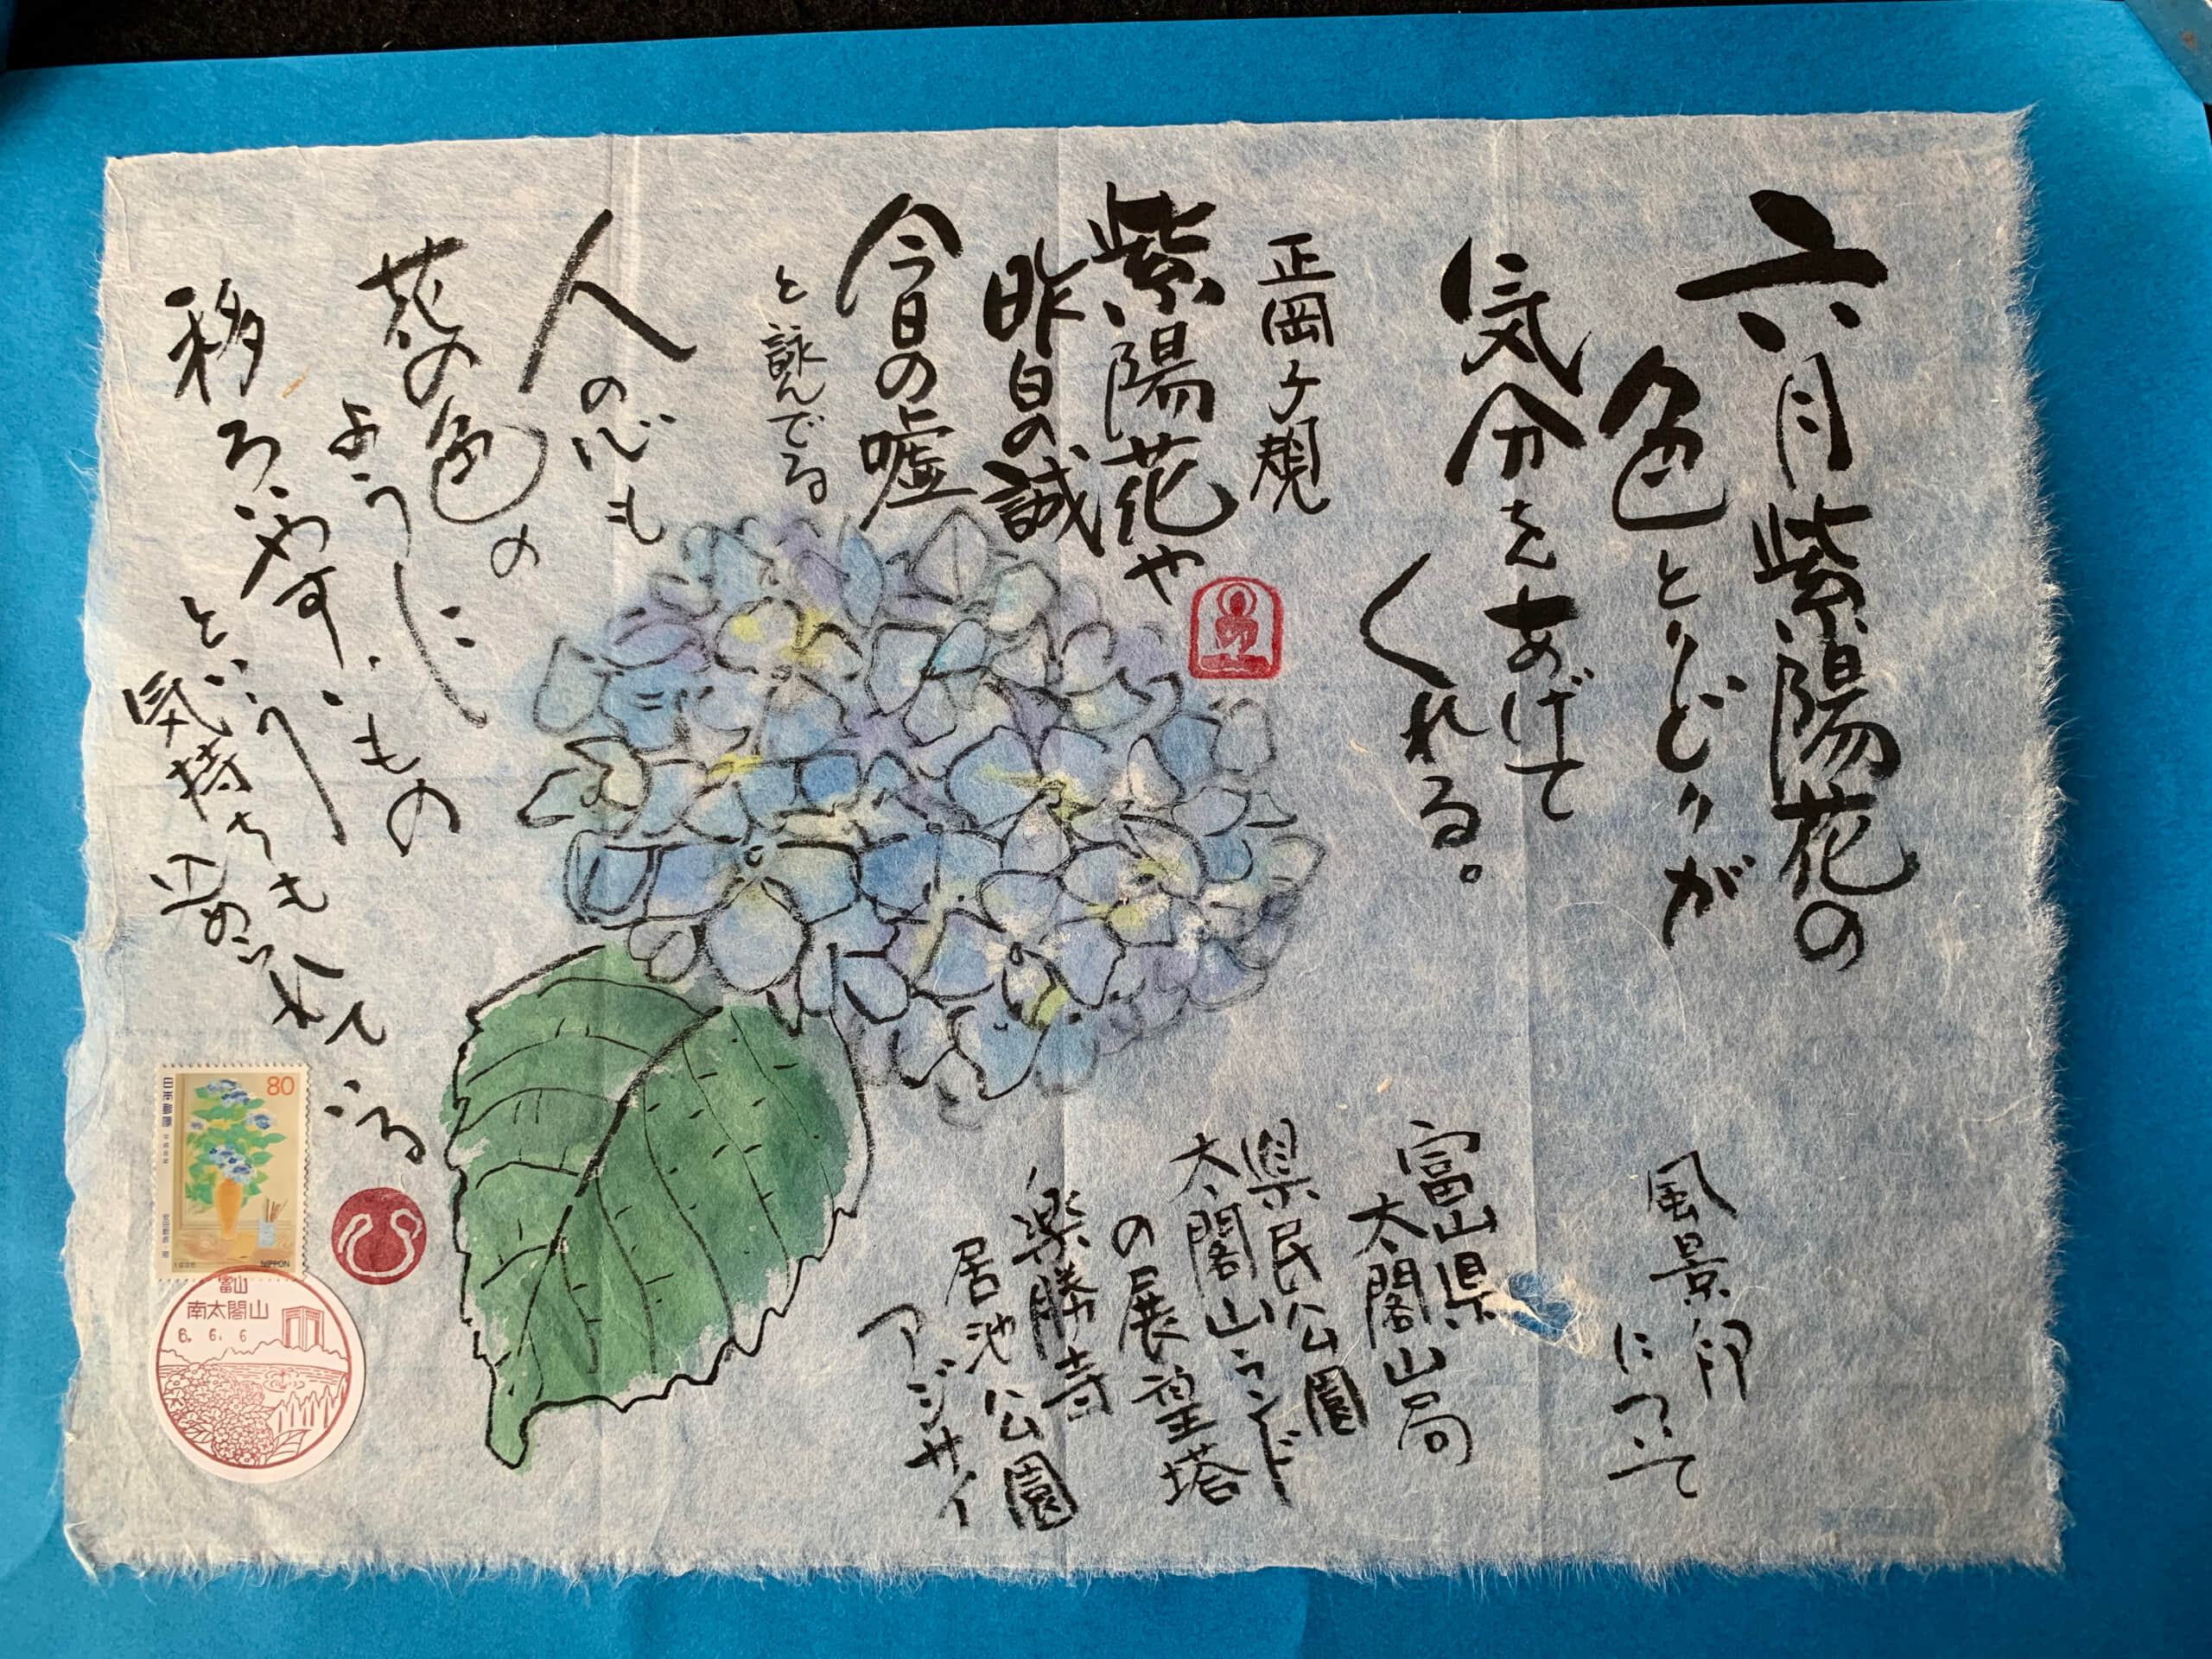 六月紫陽花の
色とりどりが
気分をあげて
くれる。
正岡子規
紫陽花や
昨日の誠
今日の嘘
と詠んでる
人の心も
花の色の
ように
移ろいやすいもの
という
気持ちも込められて
いる
風景印
について
富山県
太閤山局
県民公園
太閤山ランド
の展望塔
楽勝寺
居池公園
アジサイ
80
日本郵便
NIPPON
富山
南太閤山
6.6.6
ひ